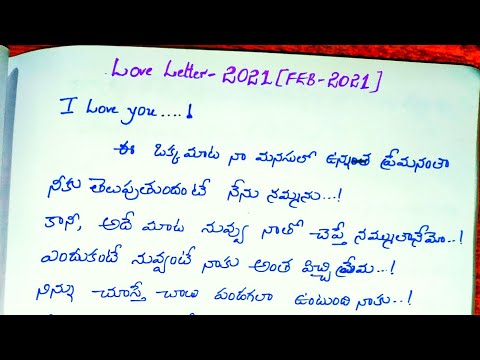 Love Letter - 2021 [FEB-2021]
I Love you....!
ఈ ఒక్క మాట నా మనసులో ఉన్నంత ప్రేమనంతా
నీకు తెలుపుతుందంటే నేను నమ్మను...!
కాని, అదే మాట నువ్వు నాతో చెప్తే నమ్ముతానేమో..!
ఎందుకంటే నువ్వంటే నాకు అంత పిచ్చి ప్రేమ...!
నిన్ను చూస్తే చాలు పండగలా ఉంటుంది నాకు..!